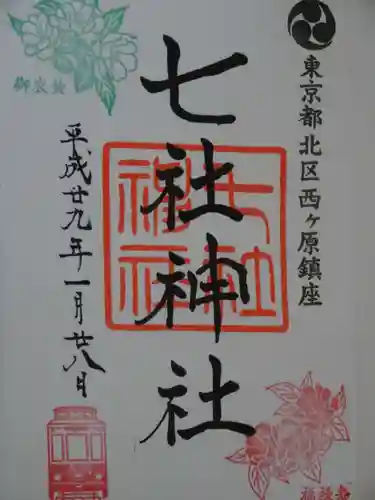 東京都北区西ヶ原鎮座
七社神社
七社
神社
平成廿九年一月廿八日